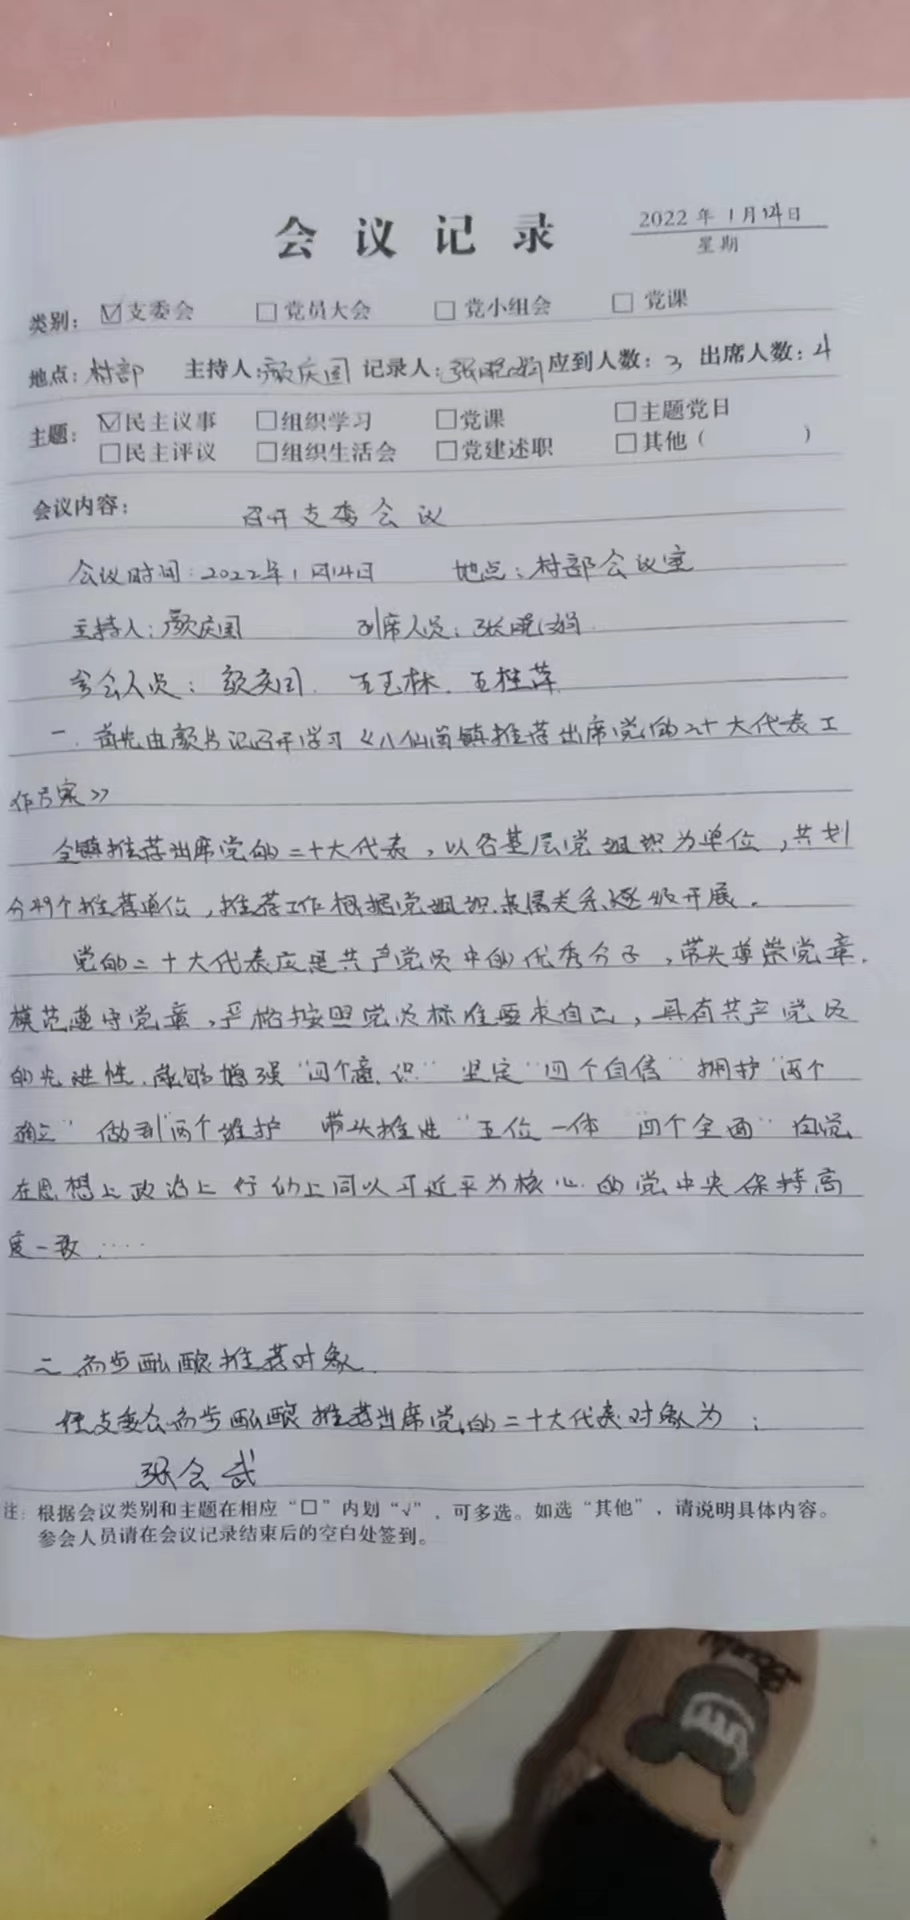 会议记录
2022年1月14日
星期
类别：☑支委会 □党员大会 □党小组会 □党课
地点：村部 主持人：颜庆国 记录人：张晓娟 应到人数：3 出席人数：4
主题：☑民主议事 □组织学习 □党课 □主题党日
□民主评议 □组织生活会 □党建述职 □其他（ ）
会议内容： 召开支委会议
会议时间：2022年1月14日 地点：村部会议室
主持人：颜庆国 列席人员：张晓娟
参会人员：颜庆国、王玉林、王桂萍
一、首先由颜书记召开学习《八仙筒镇推荐出席党的二十大代表工
作方案》
全镇推荐出席党的二十大代表，以各基层党组织为单位，共划
分49个推荐单位，推荐工作根据党组织隶属关系逐级开展。
党的二十大代表应是共产党员中的优秀分子，带头尊崇党章，
模范遵守党章，严格按照党员标准要求自己，具有共产党员
的先进性，能够增强“四个意识”坚定“四个自信”拥护“两个
确立”做到“两个维护 带头推进“五位一体 四个全面”自觉
在思想上政治上行动上同以习近平为核心的党中央保持高
度一致……
二、初步酝酿推荐对象
经支委会初步酝酿推荐出席党的二十大代表对象为：
张会武
注：根据会议类别和主题在相应“□”内划“√”，可多选。如选“其他”，请说明具体内容。
参会人员请在会议记录结束后的空白处签到。